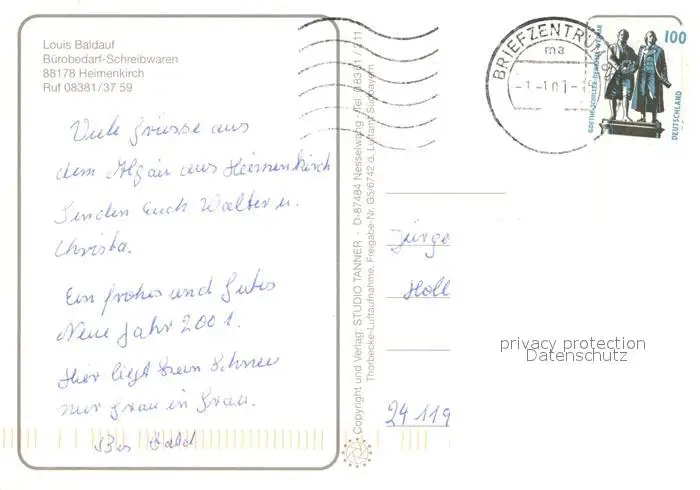 Louis Baldauf
Bürobedarf-Schreibwaren
88178 Heimenkirch
Ruf 08381/37 59
Viele Grüsse aus
dem Algäu aus Heimenkirch
Senden Euch Walter u.
Christa.
Ein frohes und Gutes
Neue Jahr 2001.
Hier liegt kein Schnee
nur Grau in Grau.
Bis bald
Copyright und Verlag: STUDIO TANNER · D-87484 Nesselwang · Tel. 08361/
Thorbecke-Luftaufnahme, Freigabe-Nr. G5/6742 d. Luftamt Südbayern
BRIEFZENTRUM
ma
-1.-1.01.-
100
GOETHE-SCHILLER-DENKMAL WEIMAR
DEUTSCHLAND
Jürge
Holl
privacy protection
Datenschutz
24 119